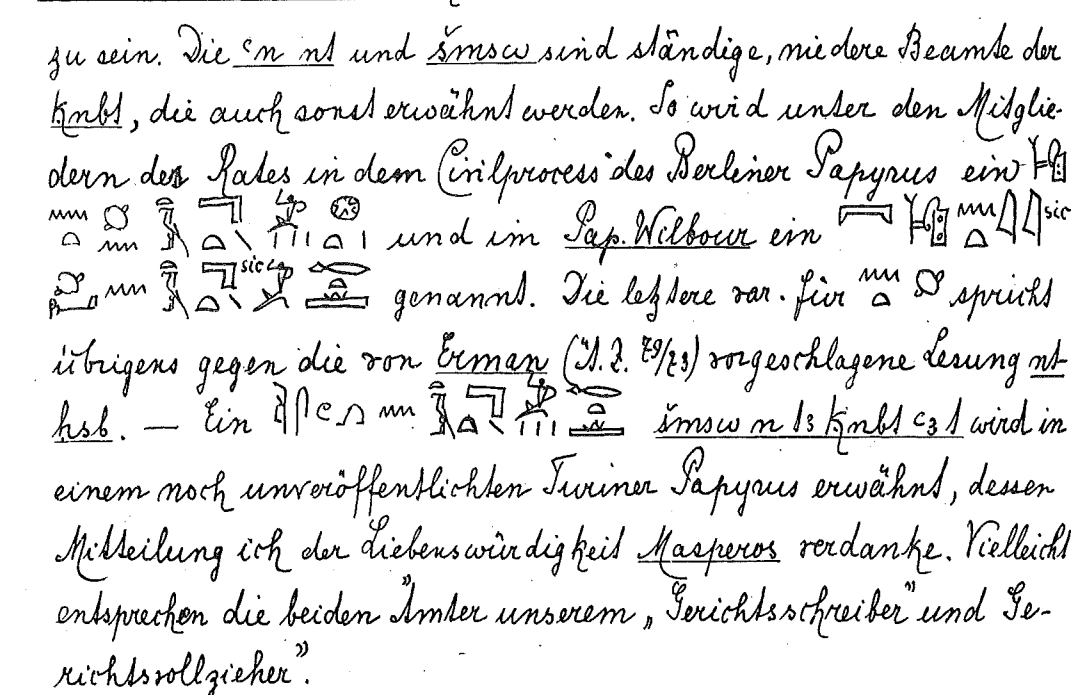 zu sein. Die ꜥn nt und šmsw sind ständige, niedere Beamte der
knbt, die auch sonst erwähnt werden. So wird unter den Mitglie-
dern des Rates in dem Civilprocess des Berliner Papyrus ein
und im Pap. Wilbour ein sic
sic genannt. Die letztere var. für spricht
übrigens gegen die von Erman (Ä. Z. 79/73) vorgeschlagene Lesung nt-
hsb. — Ein šmsw n tꜣ knbt ꜥꜣt wird in
einem noch unveröffentlichten Turiner Papyrus erwähnt, dessen
Mitteilung ich der Liebenswürdigkeit Masperos verdanke. Vielleicht
entsprechen die beiden Ämter unserem „Gerichtsschreiber" und Ge-
richtsvollzieher".